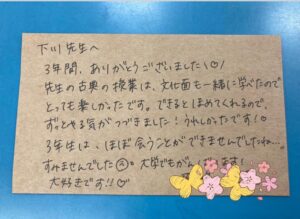 下川先生へ
3年間、ありがとうございました\♡/
先生の古典の授業は、文化面も一緒に学べたので
とっても楽しかったです。できるとほめてくれるので、
ずっとやる気がつづきました！うれしかったです！♡
3年生は、ほぼ会うことができませんでしたね…
すみませんでした 。大学でもがんばります！
大好きです!!♡